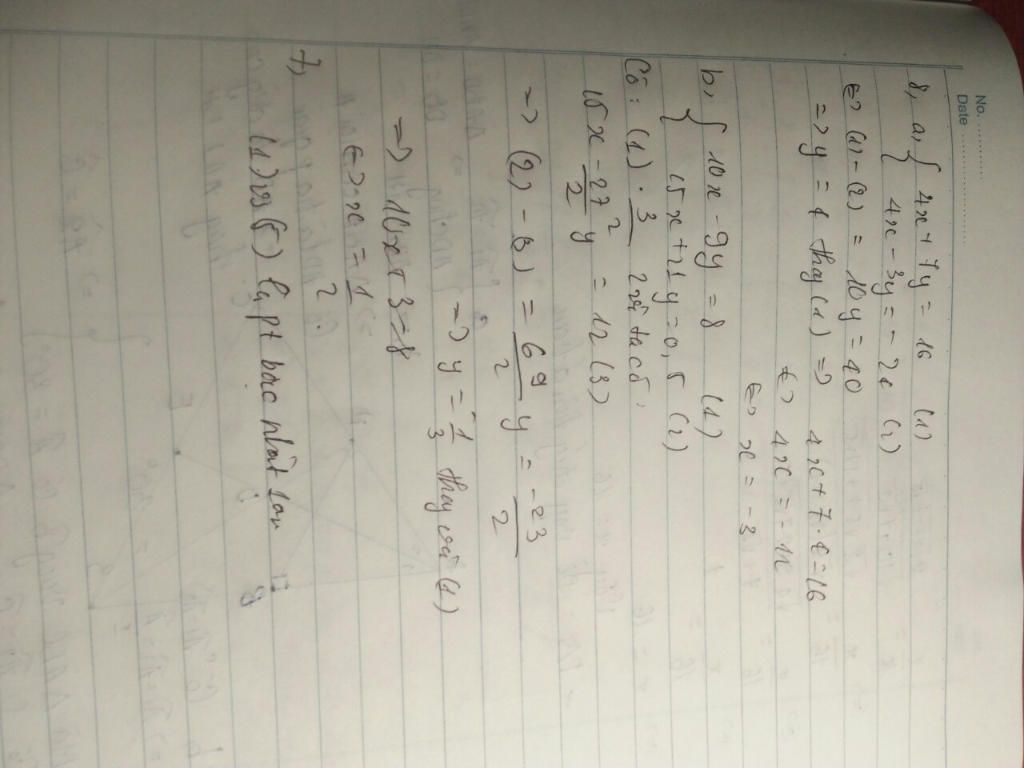 No. ....................
Date ....................
8, a, { 4x + 7y = 16 (1)
4x - 3y = -24 (2)
<=> (1) - (2) = 10y = 40
=> y = 4 thay (1) => 4x + 7.4 = 16
<=> 4x = -12
<=> x = -3
b, { 10x - 9y = 8 (1)
15x + 21y = 0,5 (2)
Có: (1) . 3/2 ta có:
15x - 27/2 y = 12 (3)
=> (2) - (3) = 69/2 y = -23/2
=> y = -1/3 thay vào (1)
=> 10x + 3 = 8
<=> x = 1/2.
7, (1) và (5) là pt bậc nhất 1 ẩn